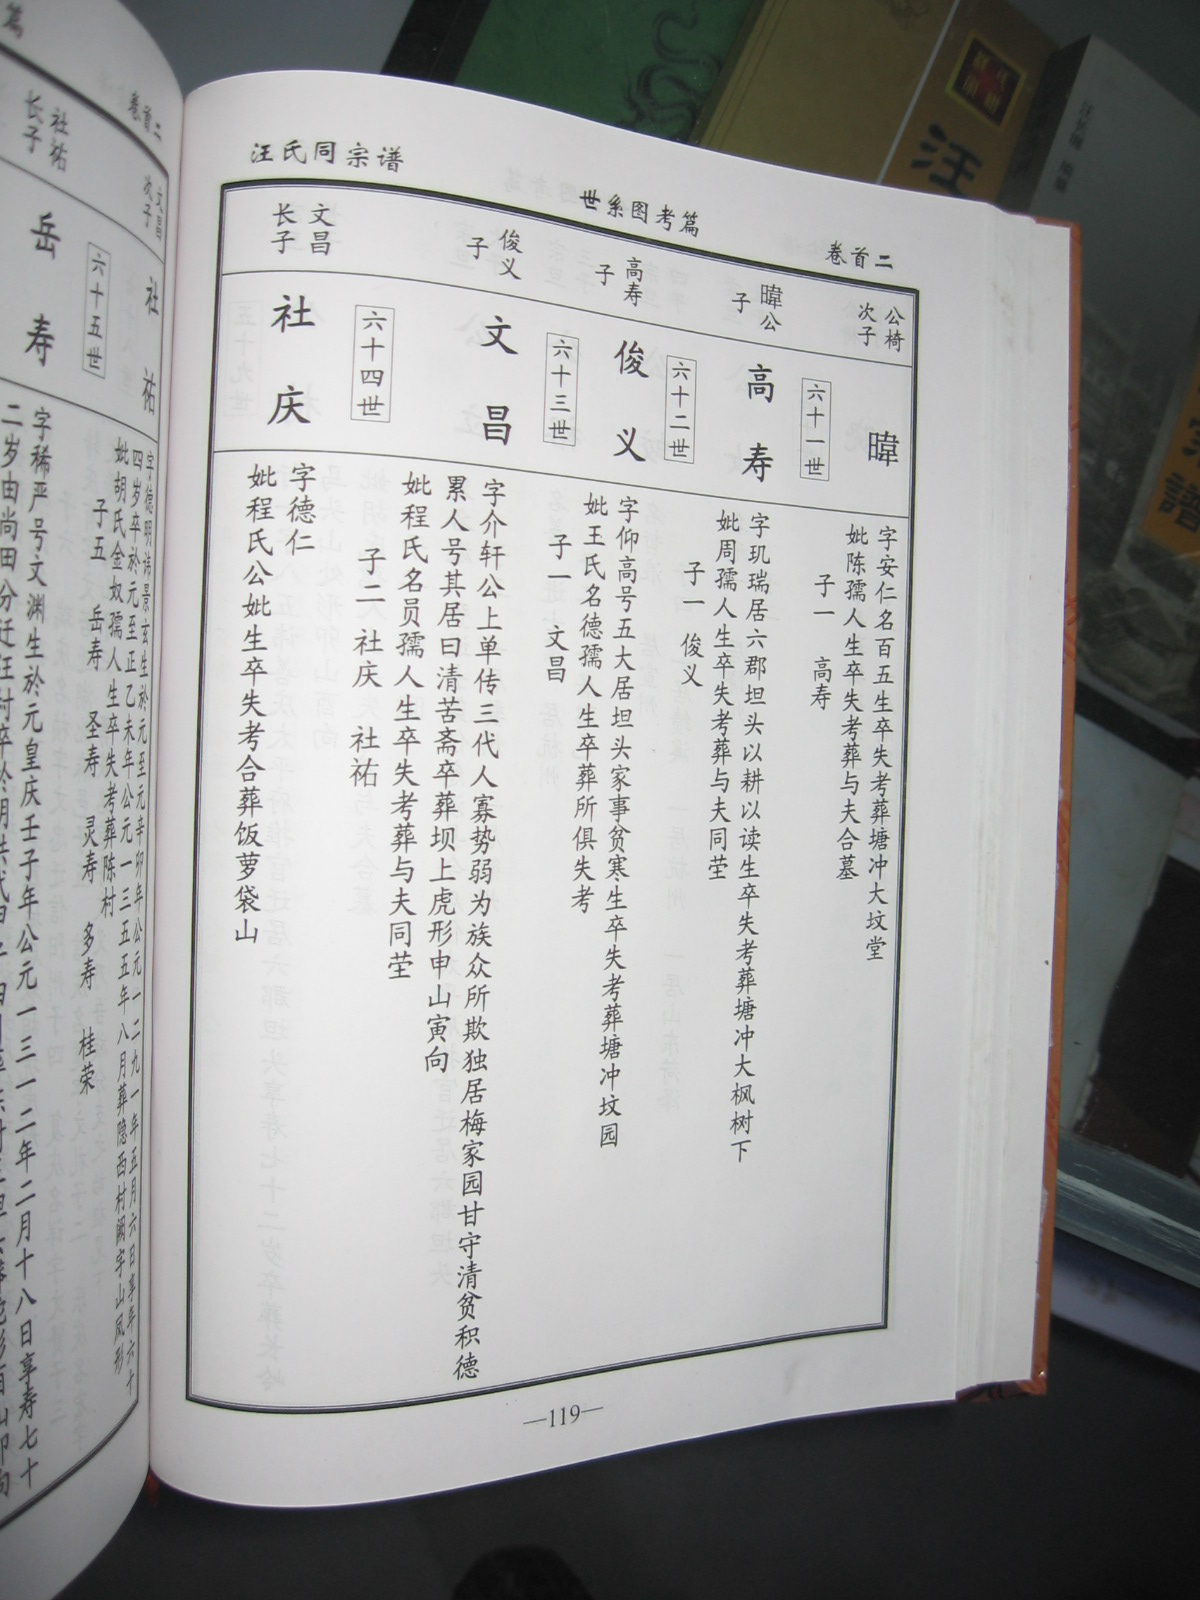 汪氏同宗谱
世系图考篇
卷首二
公椅
次子
暐
字安仁名百五生卒失考葬塘冲大坟堂
妣陈孺人生卒失考葬与夫合墓
子一 高寿
六十一世
暐公
子
高寿
字玑瑞居六郡坦头以耕以读生卒失考葬塘冲大枫树下
妣周孺人生卒失考葬与夫同茔
子一 俊义
六十二世
高寿
子
俊义
字仰高号五大居坦头家事贫寒生卒失考葬塘冲坟园
妣王氏名德孺人生卒葬所俱失考
子一 文昌
六十三世
俊义
子
文昌
字介轩公上单传三代人寡势弱为族众所欺独居梅家园甘守清贫积德
累人号其居曰清苦斋卒葬坝上虎形申山寅向
妣程氏名员孺人生卒失考葬与夫同茔
子二 社庆 社祐
六十四世
文昌
长子
社庆
字德仁
妣程氏公妣生卒失考合葬饭萝袋山
—119—
篇
卷首二
文昌
次子
社祐
字德明讳景玄生於元至元辛卯年公元一二九一年五月六日享年六十
四岁卒於元至正乙未年公元一三五五年八月葬隐西村阙字山凤形
妣胡氏金奴孺人生卒失考葬陈村
子五 岳寿 圣寿 灵寿 多寿 桂荣
六十五世
社祐
长子
岳寿
字稀严号文渊生於元皇庆壬子年公元一三一二年二月十八日享寿七十
二岁由尚田分迁汪村卒於明洪武
汪
谱